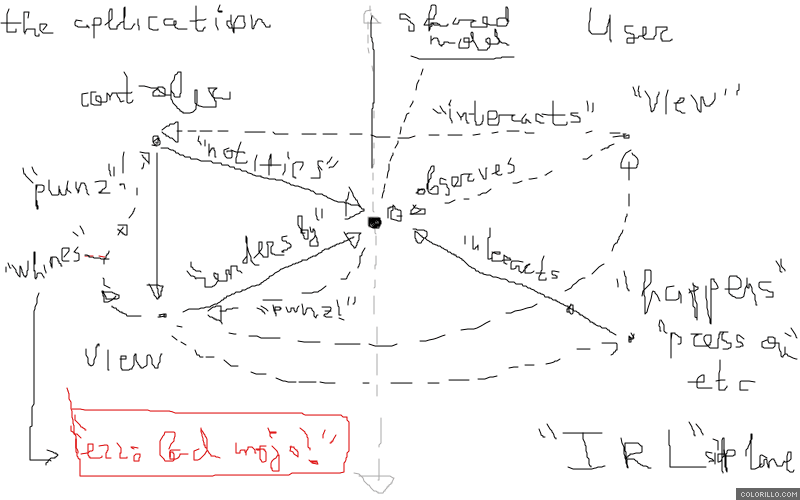 the application
shared
model
User
controller
"interacts"
"view"
"notifies"
observes
"pwnz"
"renders by"
"whines"
"interacts
"pwnz!"
"happens"
"press on"
etc
view
bad mojo!"
"IRL"
COLORILLO.COM